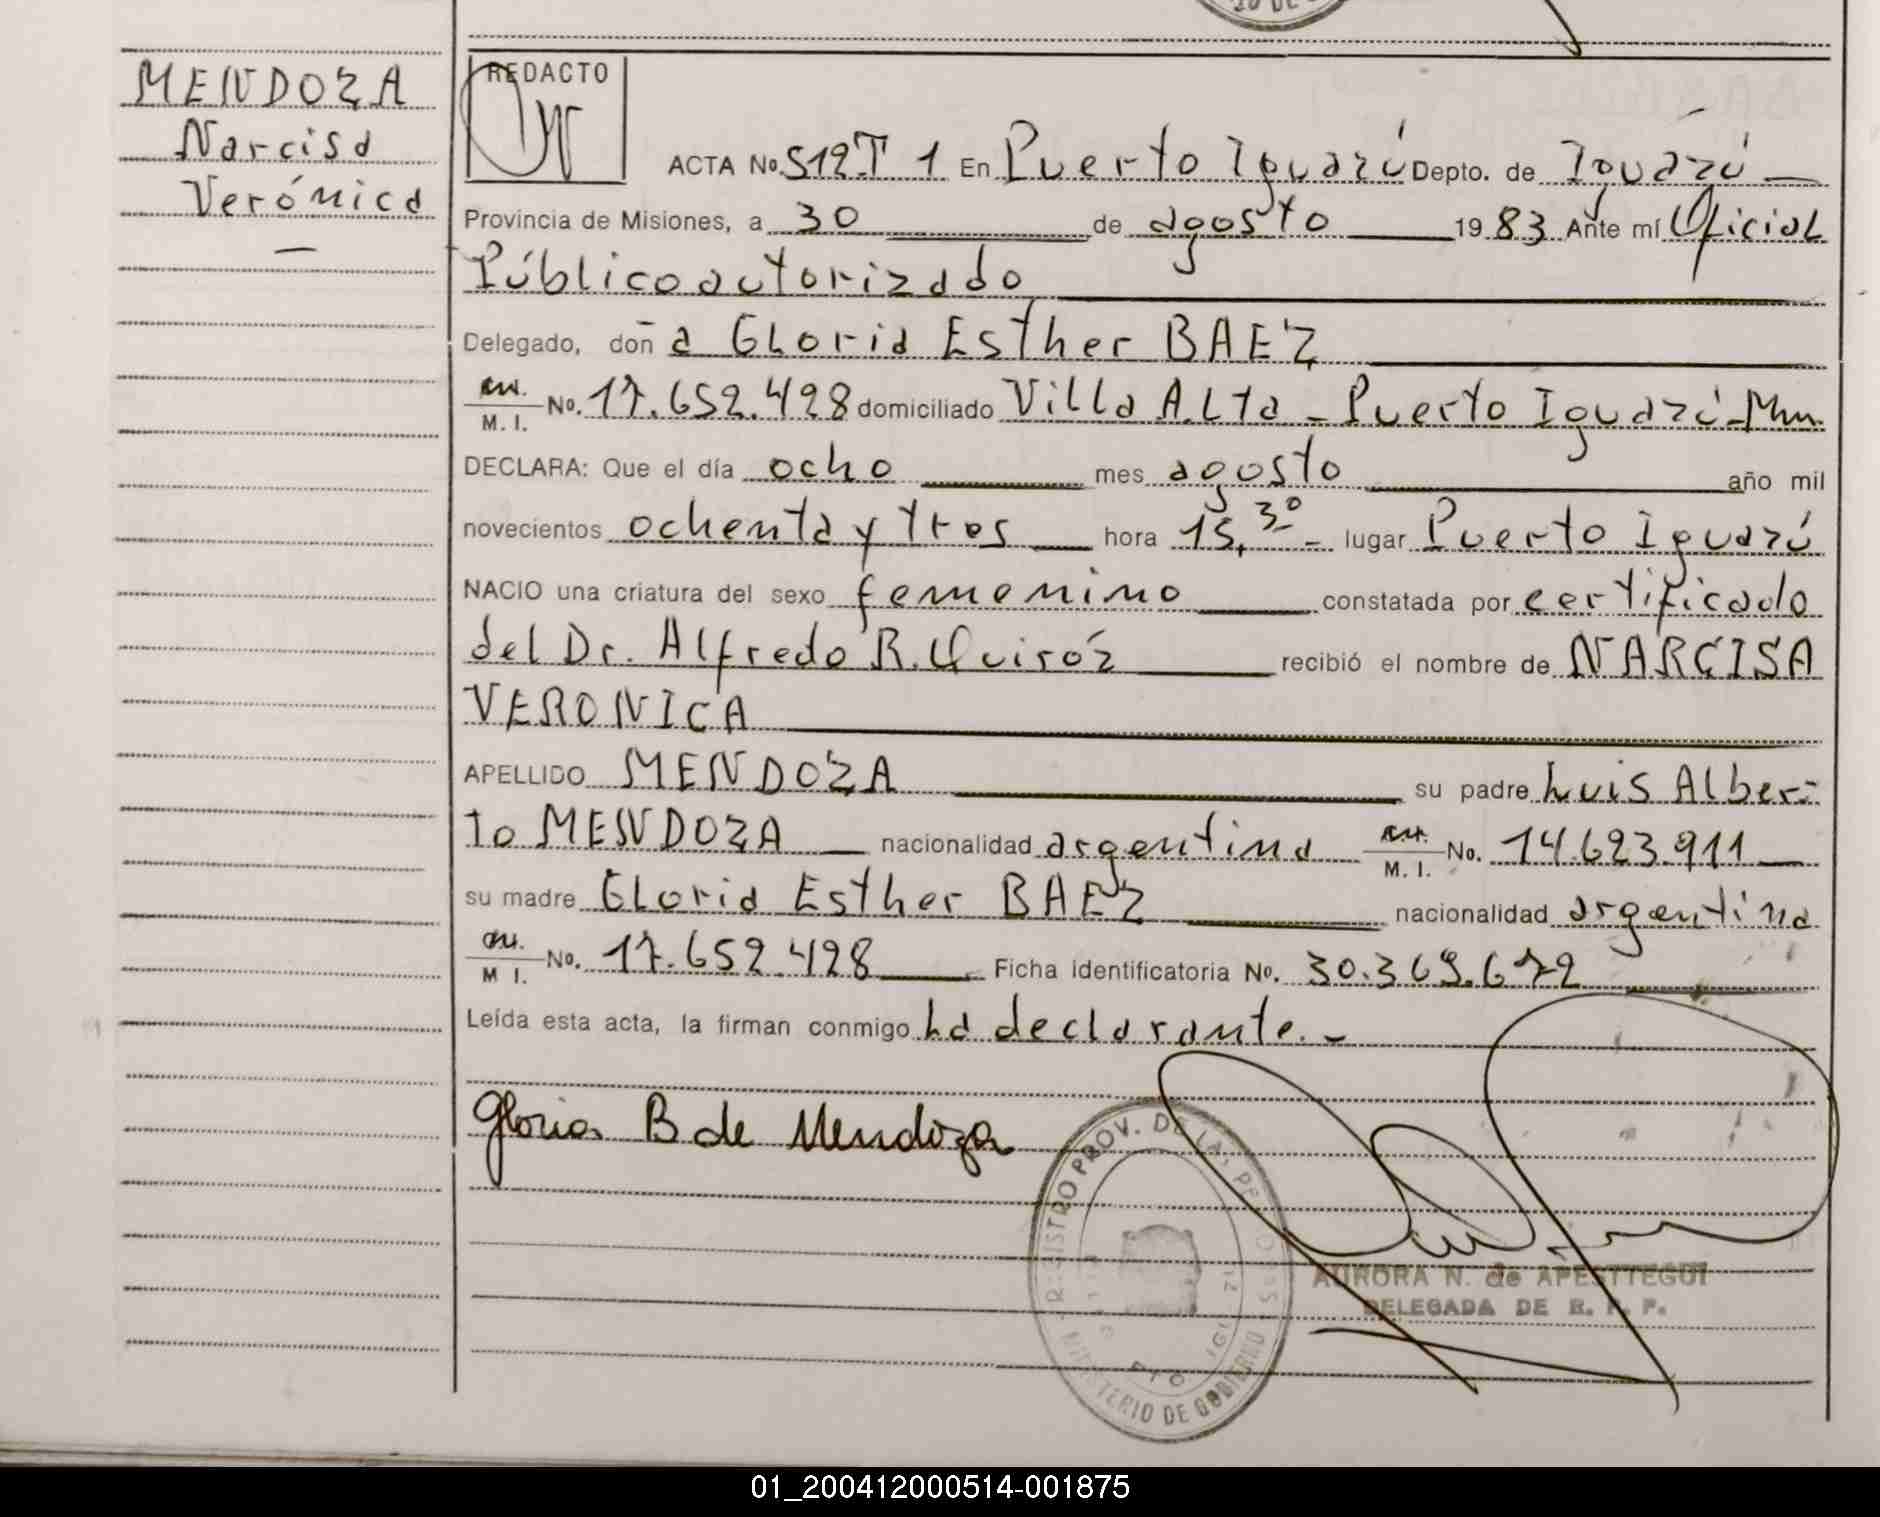 MENDOZA
Narcisa
Verónica
REDACTO
ACTA No. 512 T 1 En Puerto Iguazú Depto. de Iguazú
Provincia de Misiones, a 30 de agosto 1983 Ante mí Oficial
Público autorizado
Delegado, doña Gloria Esther BAEZ
M. I. No. 17.652.428 domiciliado Villa Alta - Puerto Iguazú - Mnes.
DECLARA: Que el día ocho mes agosto año mil
novecientos ochenta y tres hora 15,30 - lugar Puerto Iguazú
NACIO una criatura del sexo femenino constatada por certificado
del Dr. Alfredo R. Quiróz recibió el nombre de NARCISA
VERONICA
APELLIDO MENDOZA su padre Luis Alber-
to MENDOZA nacionalidad argentina M. I. No. 14.623.911
su madre Gloria Esther BAEZ nacionalidad argentina
M. I. No. 17.652.428 Ficha identificatoria No. 30.369.672
Leída esta acta, la firman conmigo La declarante.-
Gloria B de Mendoza
REGISTRO PROV. DE LAS PERSONAS
MINISTERIO DE GOBIERNO
AURORA N. de APESTTEGUI
DELEGADA DE R. P. P.
01_200412000514-001875